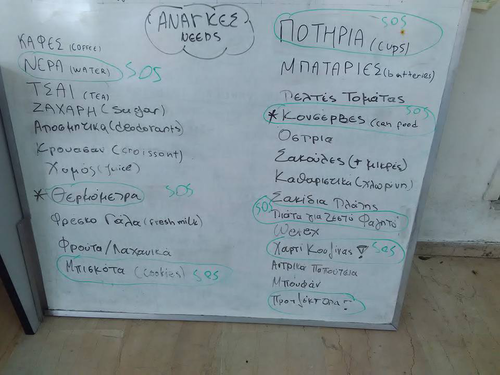 ΑΝΑΓΚΕΣ
NEEDS
ΚΑΦΕΣ (COFFEE)
ΝΕΡΑ (WATER) SOS
ΤΣΑΙ (TEA)
ΖΑΧΑΡΗ (sugar)
Αποσμητικα (deodorants)
Κρουασαν (croissant)
Χυμος (juice)
* Θερμόμετρα SOS
Φρεσκο Γάλα (fresh milk)
Φρουτα/Λαχανικα
Μπισκότα (cookies) SOS
SOS
ΠΟΤΗΡΙΑ (cups)
ΜΠΑΤΑΡΙΕΣ (batteries)
Πελτές Τομάτας
SOS
* ΚΟΝΣΕΡΒΕΣ (can food
Οσπρια
Σακούλες (+ μικρές)
Καθαριστικα (χλωρινη)
Σακίδια Πλάτης
SOS Πιάτα για Ζεστό Φαγητό
Χαρτί Κουζίνας ! SOS
Αντρικα Παπούτσια
Μπουφάν